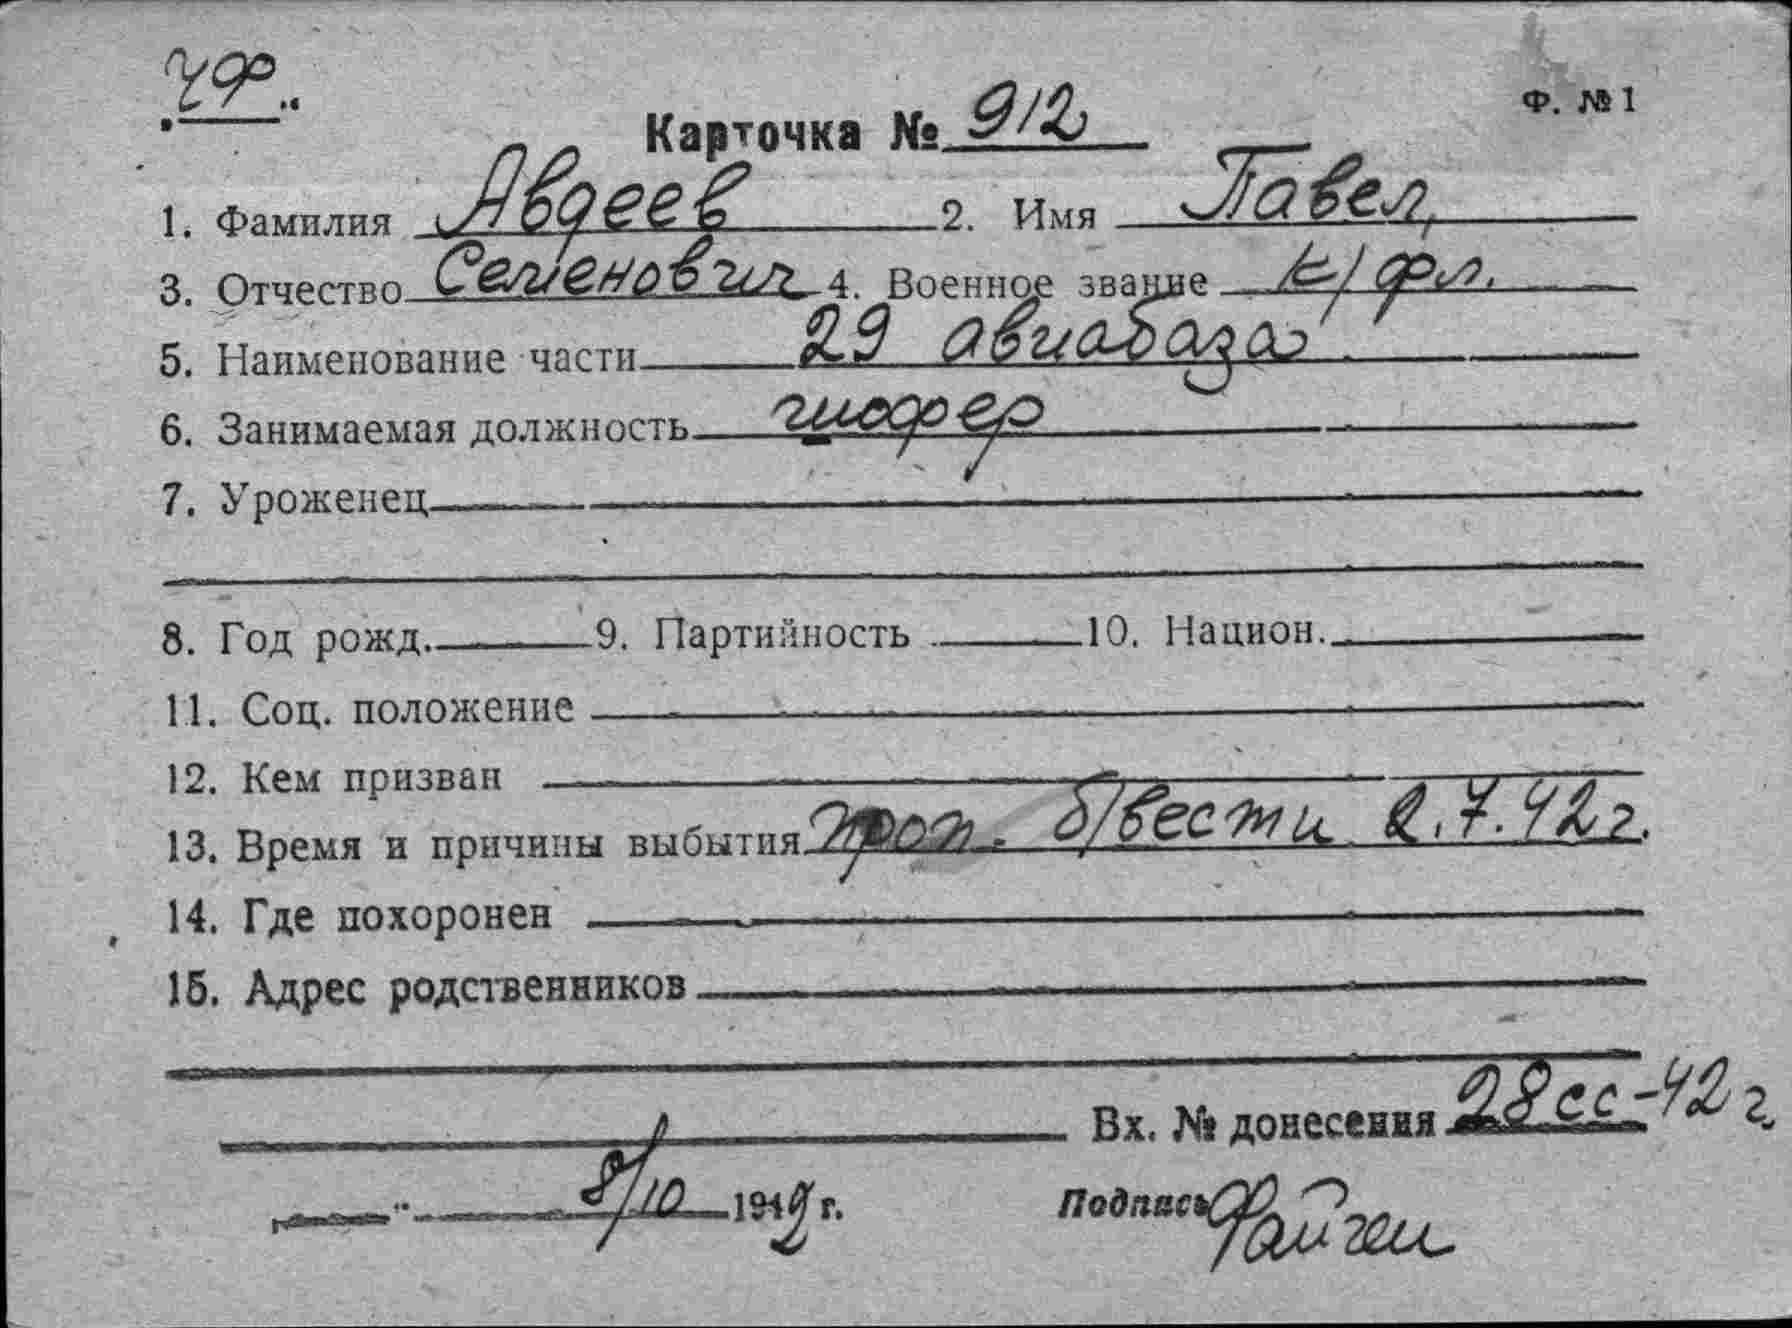 ЧФ.
Ф. № 1
Карточка № 912
1. Фамилия Авдеев 2. Имя Павел
3. Отчество Семенович 4. Военное звание к/фл.
5. Наименование части 29 авиабаза
6. Занимаемая должность шофер
7. Уроженец
8. Год рожд. 9. Партийность 10. Национ.
11. Соц. положение
12. Кем призван
13. Время и причины выбытия проп. б/вести 2.7.42г.
14. Где похоронен
15. Адрес родственников
Вх. № донесения 28сс-42г.
8/10 1942 г. Подпись